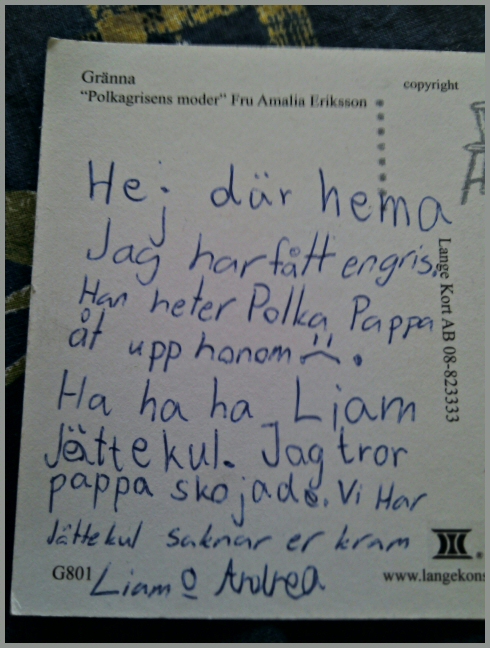 Gränna
copyright
"Polkagrisens moder" Fru Amalia Eriksson
Hej där hema
Jag har fått en gris.
Han heter Polka Pappa
åt upp honom :(.
Ha ha ha Liam
Jättekul. Jag tror
pappa skojade. Vi Har
Jättekul saknar er kram
Liam o Andrea
Lange Kort AB 08-823333
G801
www.langekons